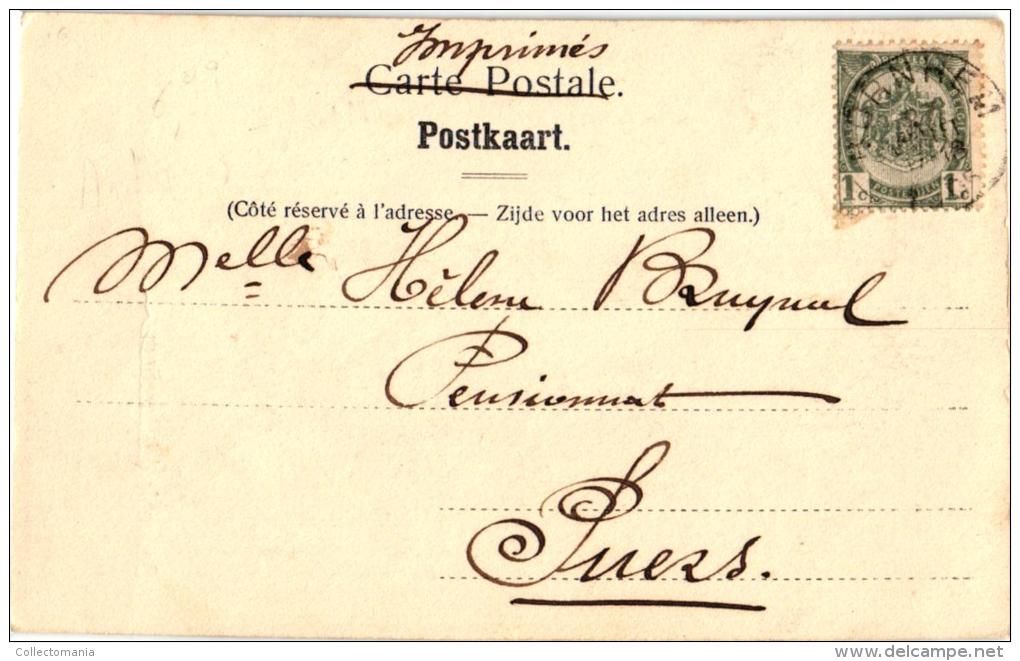 Imprimés
Carte Postale.
Postkaart.
(Côté réservé à l'adresse. — Zijde voor het adres alleen.)
Melle Hélène Bruyneel
Pensionnat
Suers.
1 c. POSTERIJEN 1 c.
Collectomania
www.delcampe.net